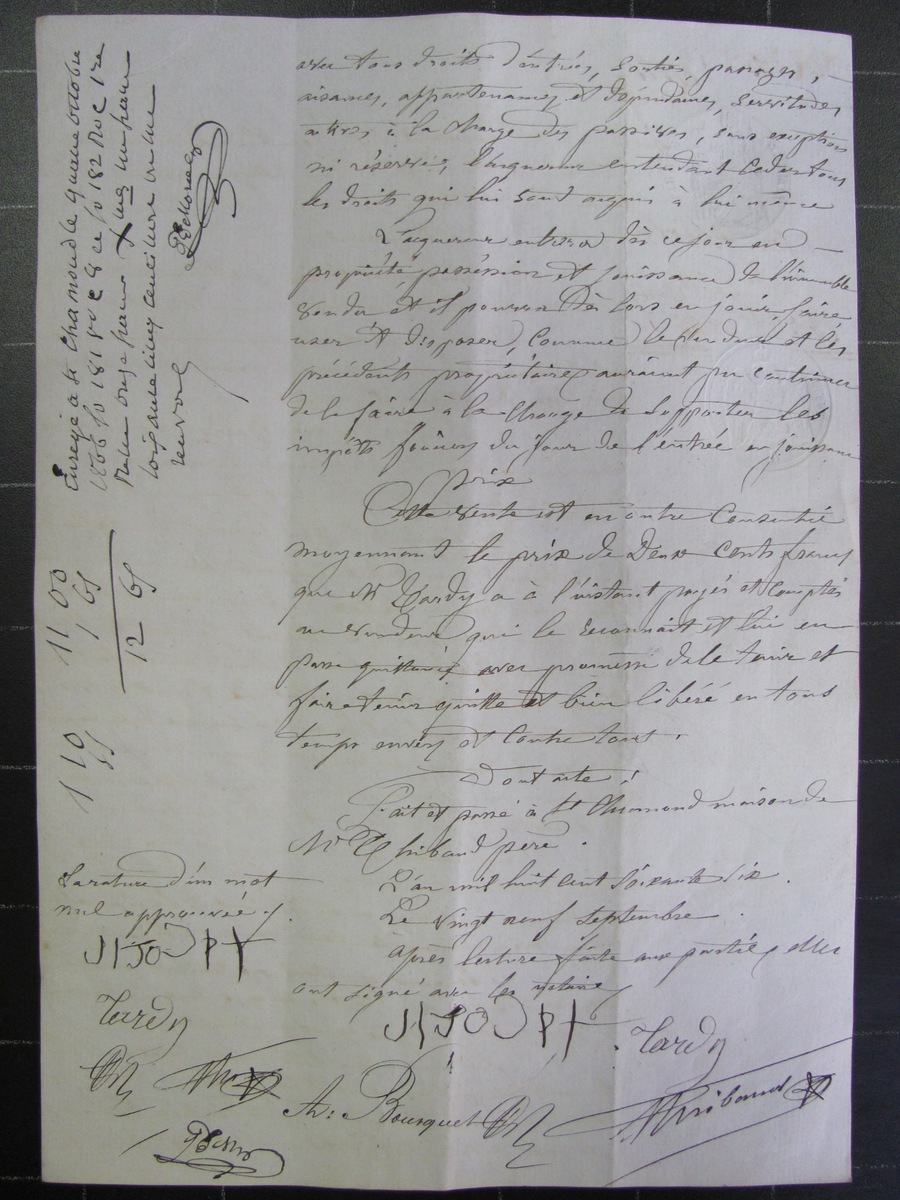 avec tous droits d'entrées, sorties, passages,
aisances, appartenances et dépendances, servitudes
actives à la charge des passives, sans exception
ni réserve, l'acquereur entendant céder tous
les droits qui lui sont acquis à lui même
L'acquereur entrera dès ce jour en
propriété, possession et jouissance de l'immeuble
vendu et il pourra dès lors en jouir, faire
user et disposer, comme le vendeur et les
précédents propriétaires auraient pu continuer
de le faire à la charge de supporter les
impôts fonciers du jour de l'entrée en jouissance
prix
Cette vente est en outre consentie
moyennant le prix de Deux cents francs
que Mr Tardy a à l'instant payés et comptés
au vendeur qui le reconnait et lui en
passe quittance avec promesse de le tenir et
faire tenir quitte et bien libéré en tous
temps envers et contre tous.
Dont acte.
Fait et passé à St Chamond maison de
Mr Thibaud père.
L'an mil huit cent soixante six.
Le vingt neuf septembre.
après lecture faite aux parties elles
ont signé avec les notaires
Tardy
An. Bousquet
Thibaud
Enregé à St Chamond le quatre octobre
1866 fo 181 Vo C 8 et fo 182 Ro C 1re
onze francs
soixante cinq centimes
11 00
1 65
12 65
1 10
55
La rature d'un mot
nul approuvée
Tardy